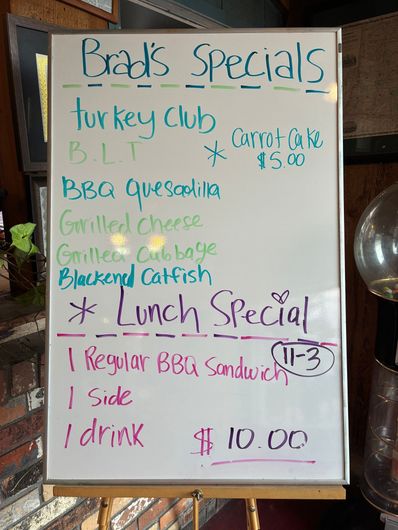 Brad's Specials
turkey Club
B.L.T
* Carrot Cake
$5.00
BBQ Quesadilla
Grilled Cheese
Grilled Cabbage
Blackend Catfish
* Lunch Special
11-3
1 Regular BBQ Sandwich
1 Side
1 drink
$10.00